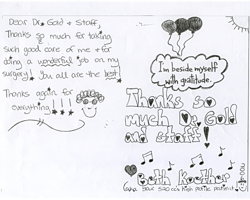 Dear Dr. Gold & Staff,
Thanks so much for taking
such good care of me & for
doing a wonderful job on my
surgery! You all are the best!
Thanks again for
everything!!!!
I'm beside myself
with gratitude.
Thanks so
much Dr. Gold
and staff!
Beth Koether
(aka your 500cc high profile patient)